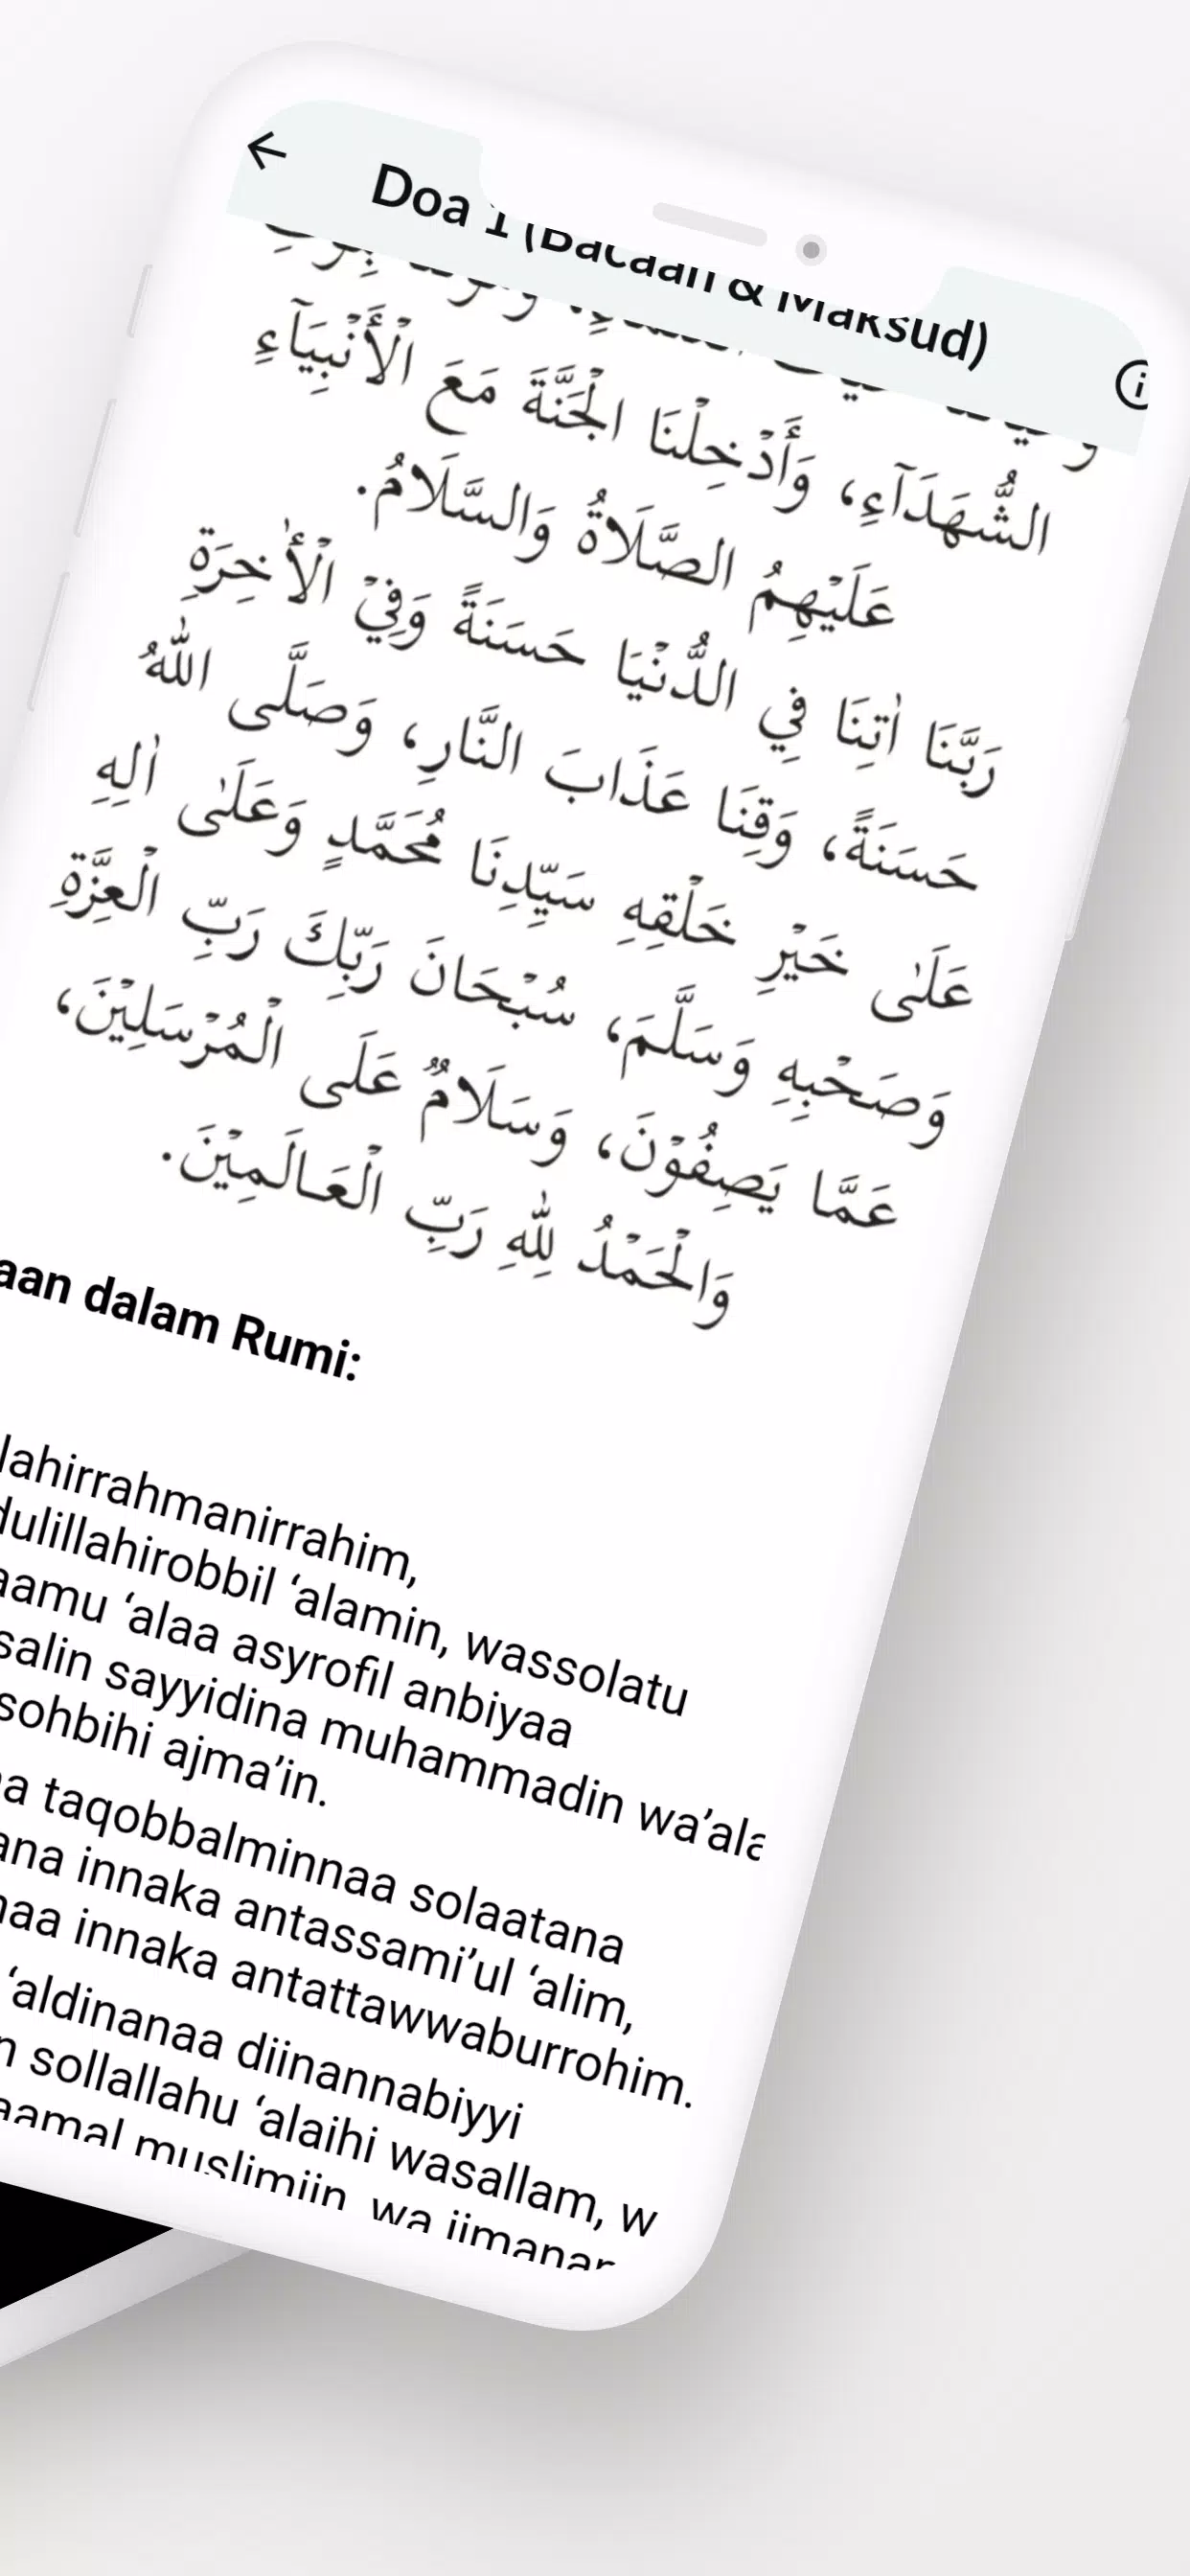 Doa 1 (Bacaan & Maksud)
الشُّهَدَآءِ، وَأَدْخِلْنَا الْجَنَّةَ مَعَ الْأَنْبِيَآءِ
عَلَيْهِمُ الصَّلَاةُ وَالسَّلَامُ.
رَبَّنَا اٰتِنَا فِي الدُّنْيَا حَسَنَةً وَفِيْ الْأٰخِرَةِ
حَسَنَةً، وَقِنَا عَذَابَ النَّارِ، وَصَلَّى اللّٰهُ
عَلٰى خَيْرِ خَلْقِهِ سَيِّدِنَا مُحَمَّدٍ وَعَلٰى اٰلِهِ
وَصَحْبِهِ وَسَلَّمَ، سُبْحَانَ رَبِّكَ رَبِّ الْعِزَّةِ
عَمَّا يَصِفُوْنَ، وَسَلَامٌ عَلَى الْمُرْسَلِيْنَ،
وَالْحَمْدُ لِلّٰهِ رَبِّ الْعَالَمِيْنَ.
aan dalam Rumi:
lahirrahmanirrahim,
dulillahirobbil ‘alamin, wassolatu
aamu ‘alaa asyrofil anbiyaa
salin sayyidina muhammadin wa’ala
sohbihi ajma’in.
a taqobbalminnaa solaatana
ana innaka antassami’ul ‘alim,
naa innaka antattawwaburrohim.
‘aldinanaa diinannabiyyi
n sollallahu ‘alaihi wasallam, w
aamal muslimiin, wa iimanan